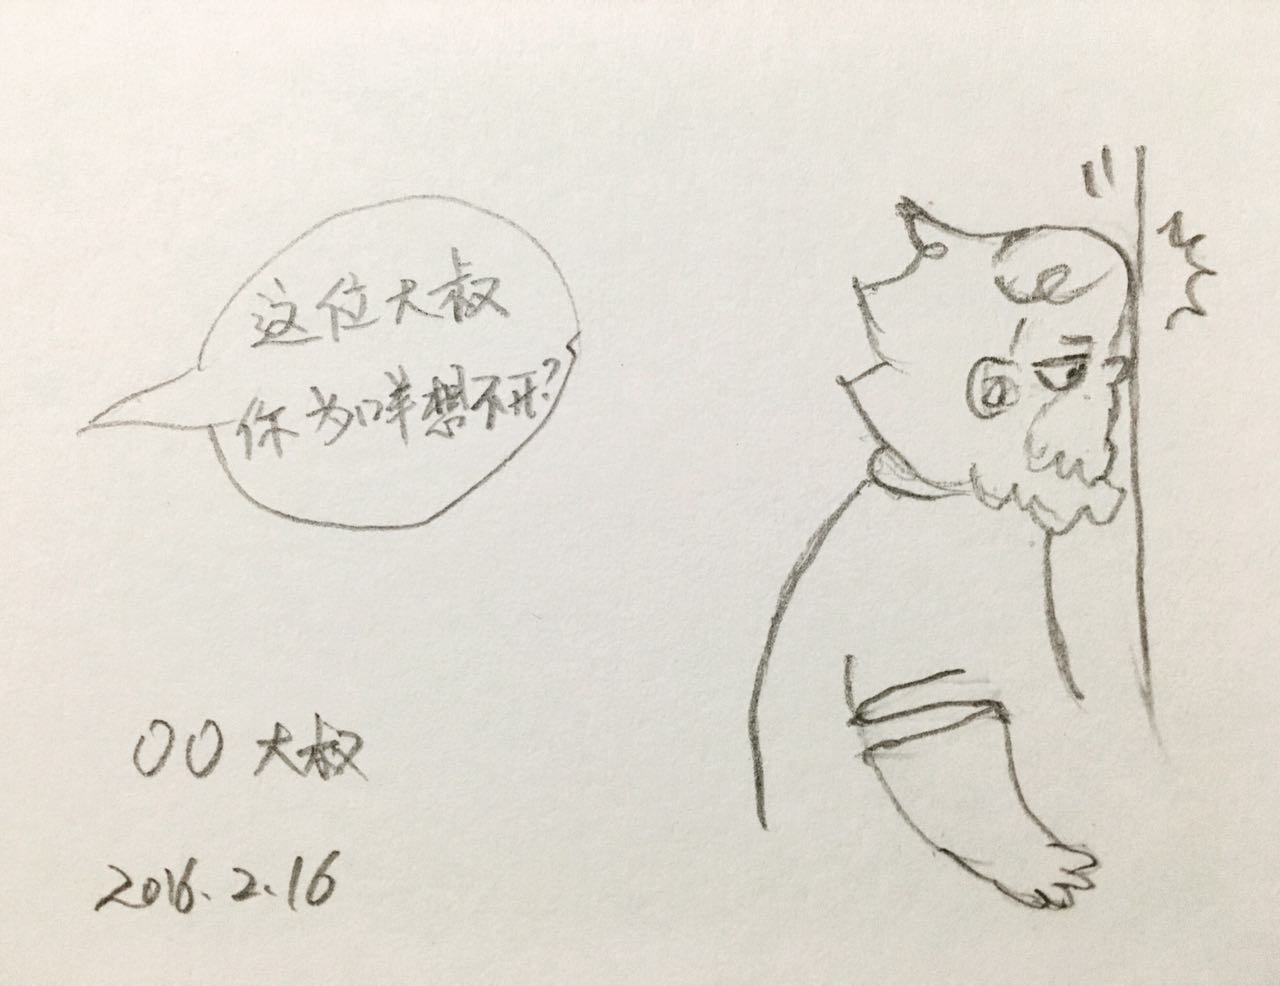 这位大叔
你为咩想不开?
OO 大叔
2016.2.16